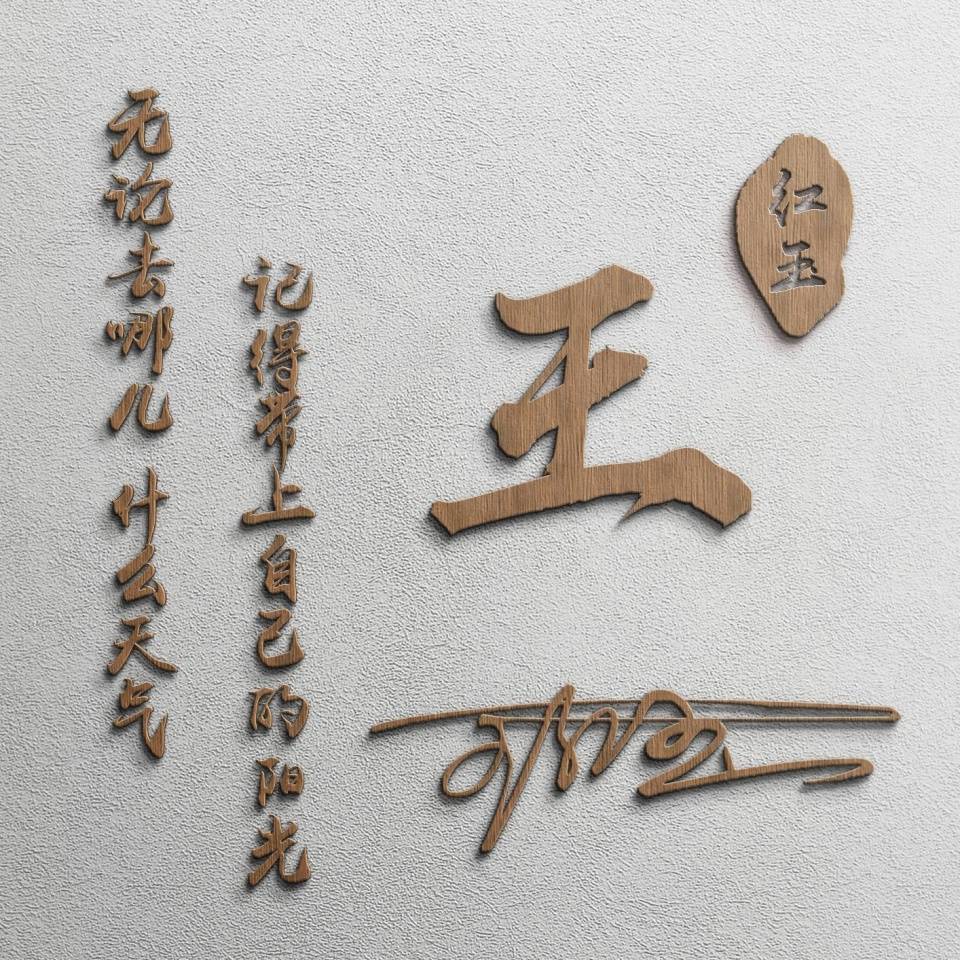 无论去哪儿 什么天气
记得带上自己的阳光
王
红玉